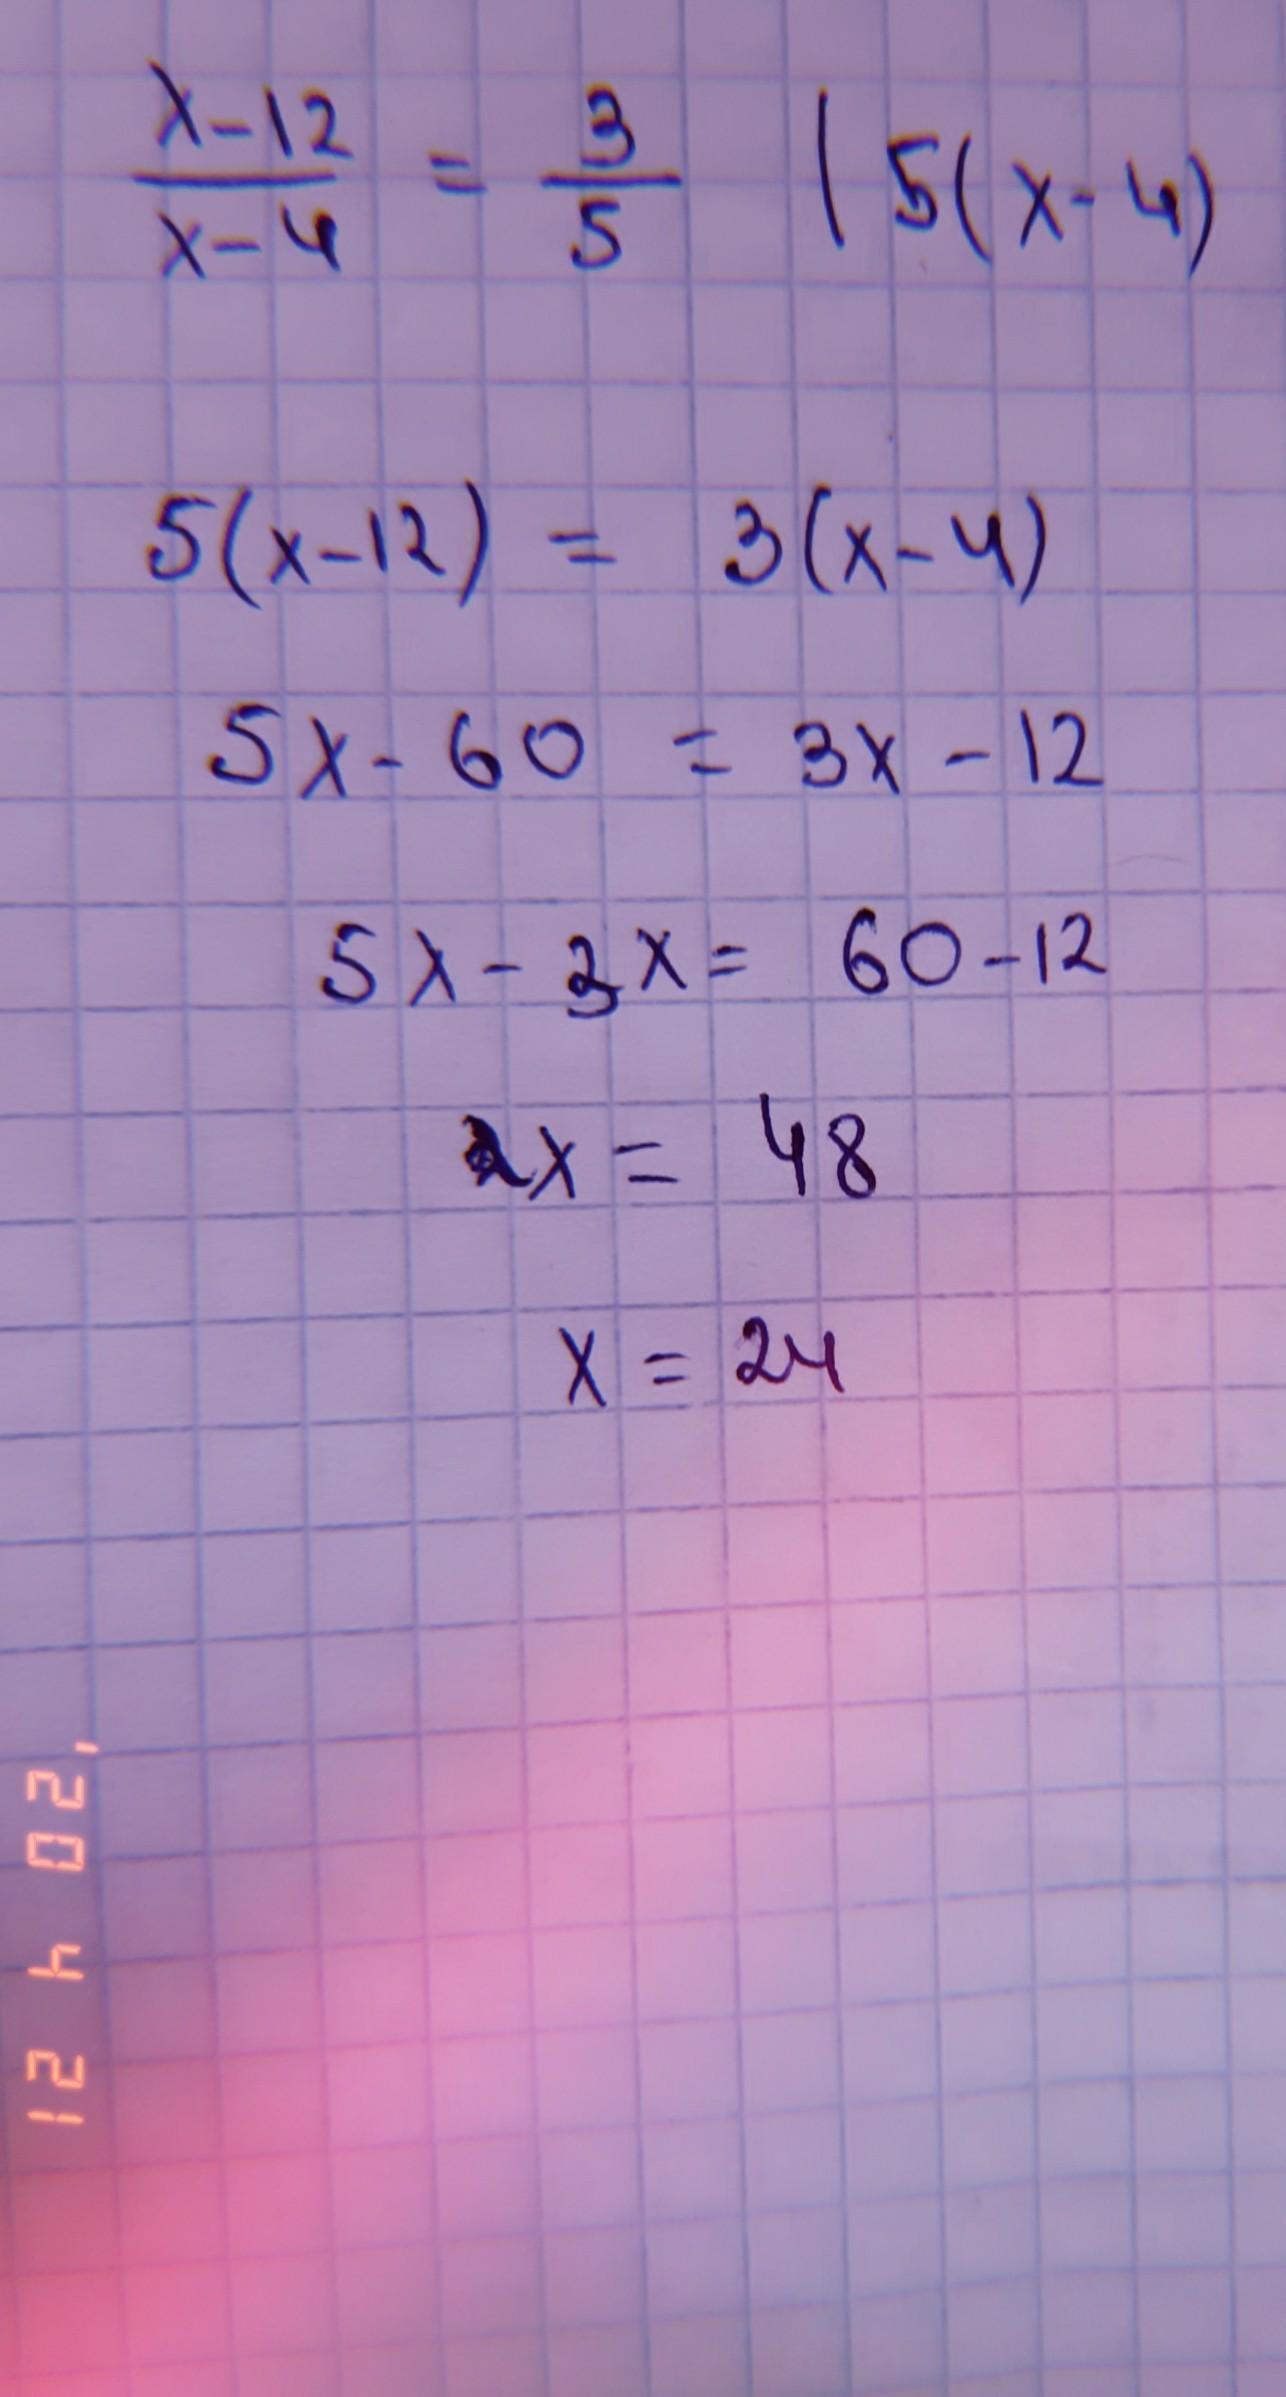 x-12/x-4 = 3/5 | 5(x-4)
5(x-12) = 3(x-4)
5x - 60 = 3x - 12
5x - 3x = 60 - 12
2x = 48
x = 24
'20 4 21